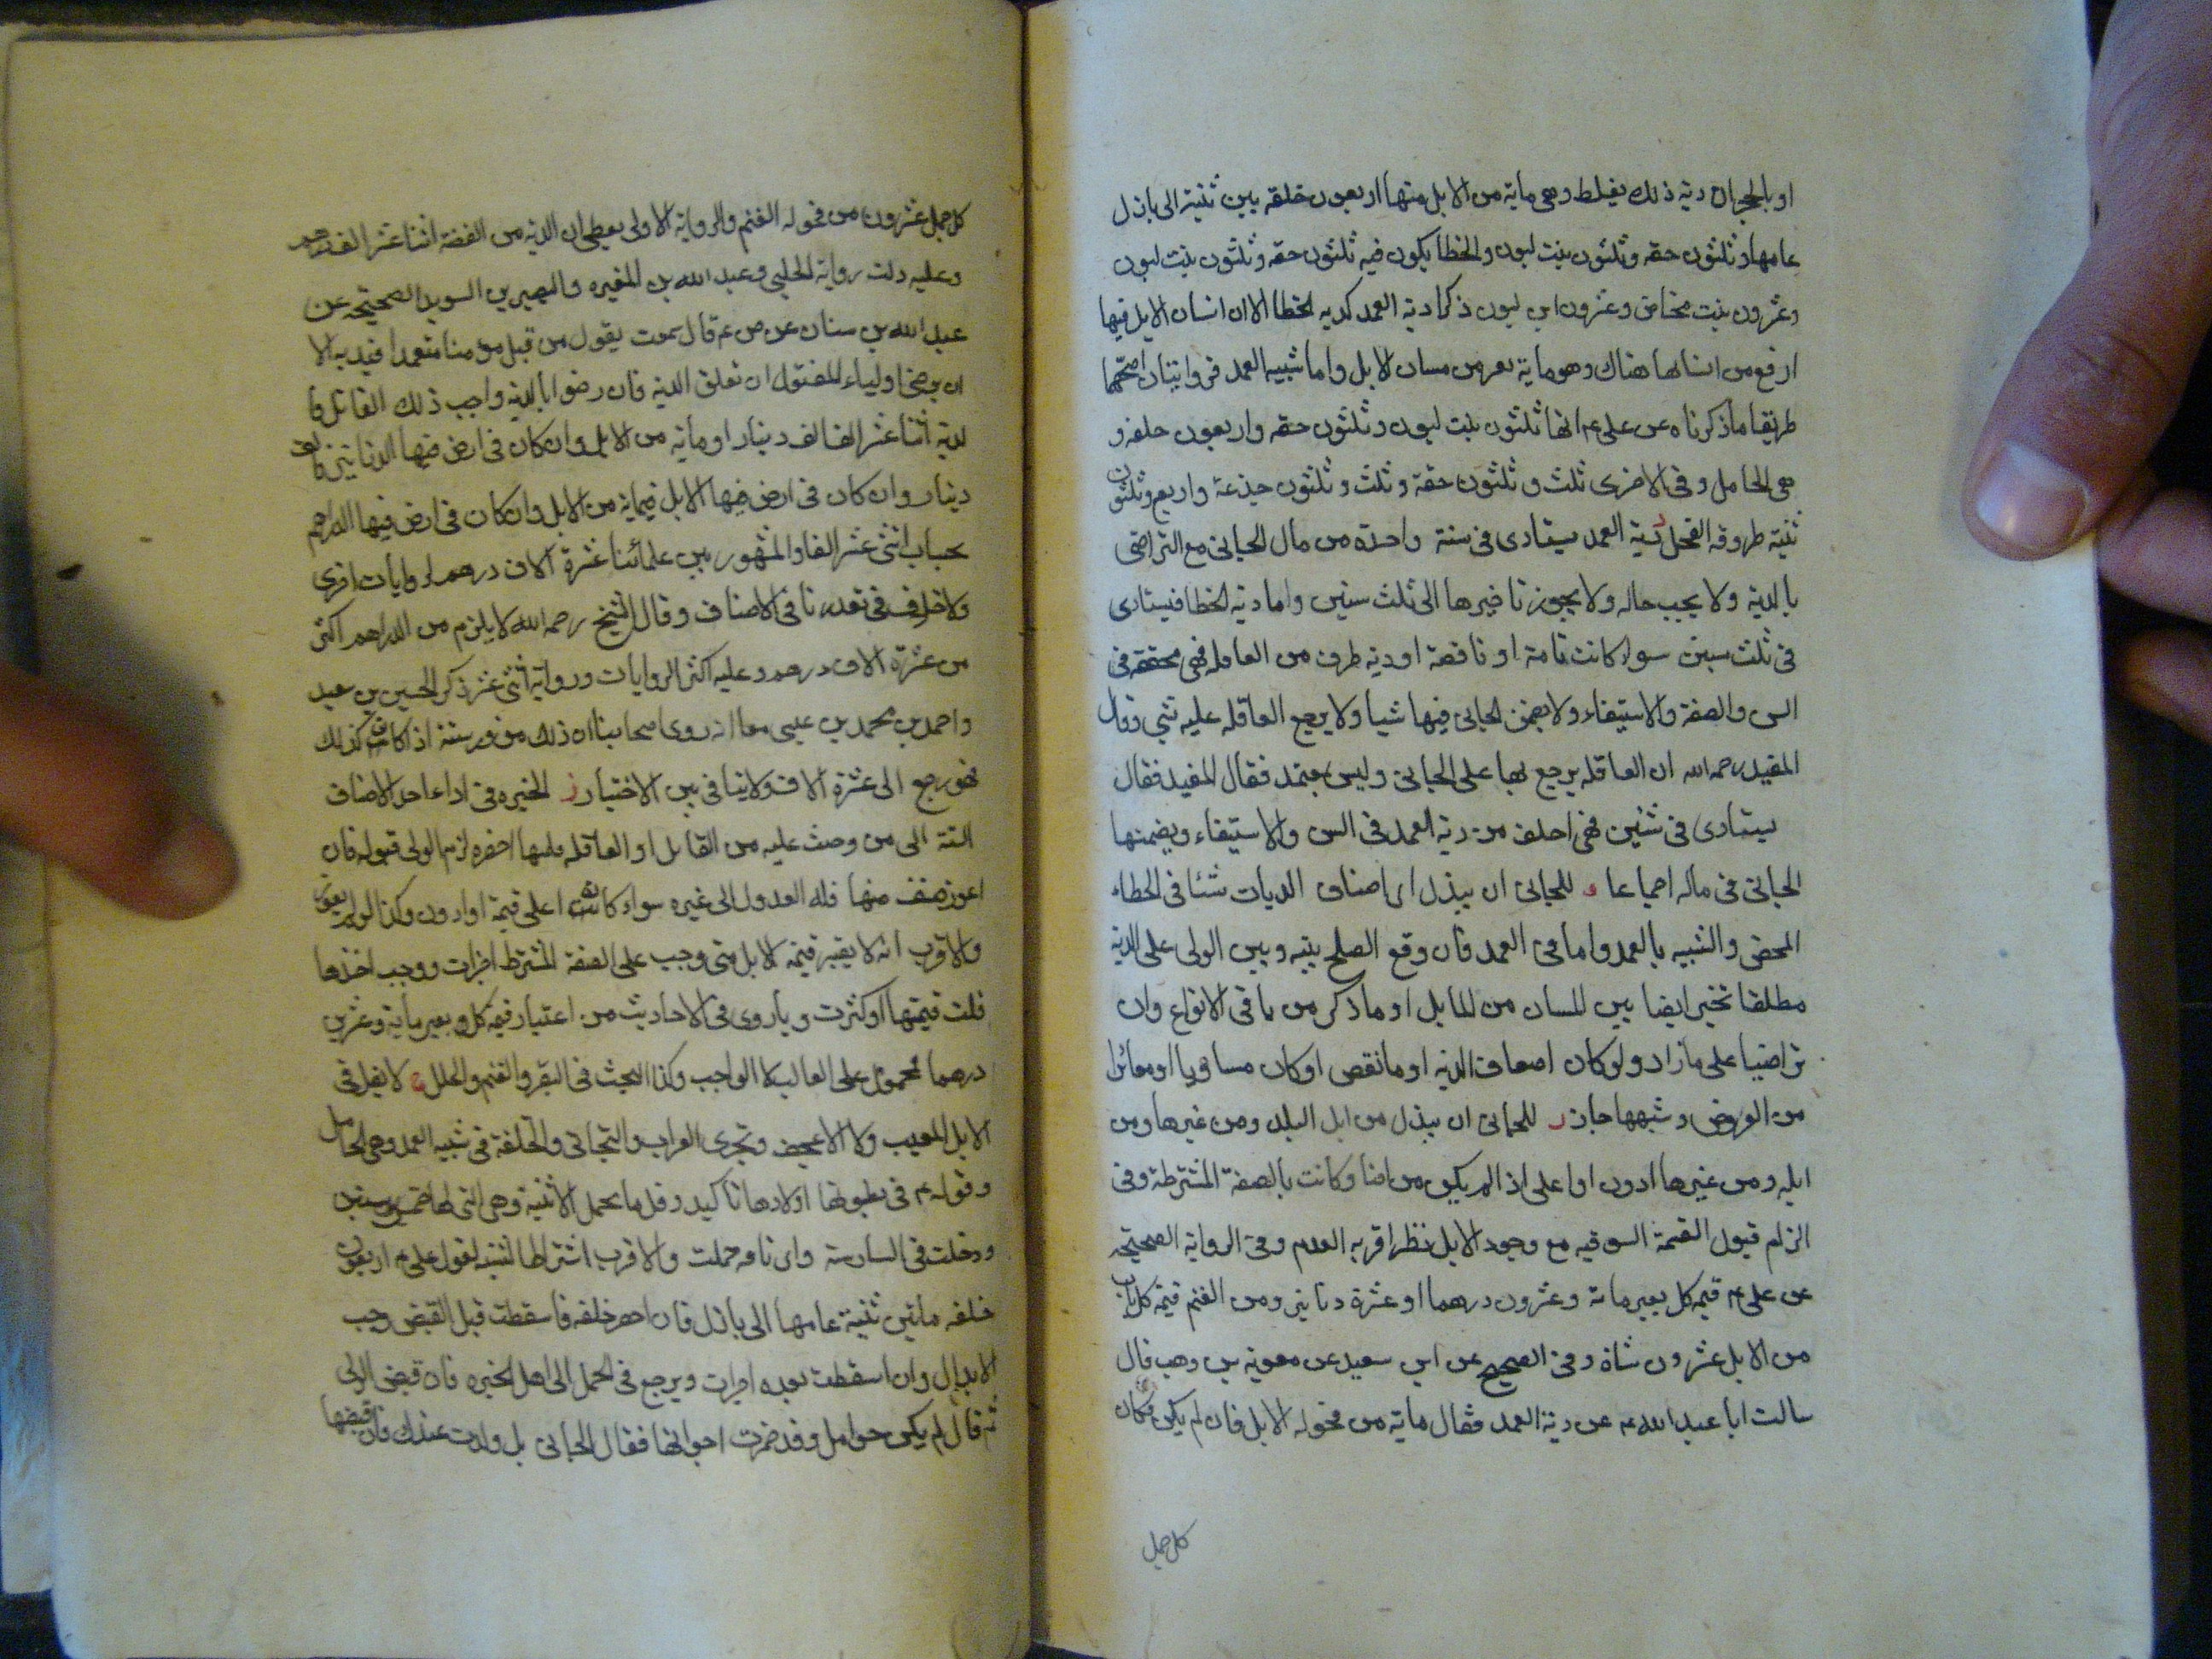 او بالحجر ان دية ذلك يغلظ وهي ماية من الابل منها اربعون خلقه بين ثنية الى بازل
عامها وثلثون حقه وثلثون بنت لبون والخطا يكون فيه ثلثون حقه وثلثون بنت لبون
وعشرون بنت مخاض وعشرون ابن لبون ذكرا دية العمد كديه الخطا الا ان اسنان الابل فيها
ارفع من اسنانها هناك وهو ماية بعير من مسان الابل واما شبيه العمد فروايتان اصحهما
طريقا ما ذكرناه عن على ع انها ثلثون بنت لبون وثلثون حقه واربعون خلفه و
هي الحامل وفي الاخرى ثلث وثلثون حقة وثلث وثلثون جذعة واربع وثلثون
ثنية طروقه الفحل دية العمد يستادى في سنة واحدة من مال الجاني مع التراضي
بالدية ولا يجب حاله ولا يجوز تاخيرها الى ثلث سنين واما دية الخطا فيستادى
في ثلث سنين سواء كانت تامة او ناقصة او دية طرف من العاقله فهي مخففة في
السن والصفة والاستيفاء ولا يضمن الجاني فيها شيا ولا يرجع العاقله عليه بشي وقال
المفيد رحمه الله ان العاقله يرجع بها على الجاني وليس بمعتمد فقال المفيد فقال
يستادى في سنتين فهي اخف من دية العمد في السن والاستيفاء ويضمنها
الجاني في ماله اجماعا و للجاني ان يبذل اى اصناف الديات شئا في الخطاء
المحض والشبيه بالعمد واما في العمد فان وقع الصلح بينه وبين الولى على الدية
مطلقا تخير ايضا بين المسان من الابل او ما ذكر من باقي الانواع وان
تراضيا على مازاد ولو كان اضعاف الدية او ما نقص او كان مساويا او مغائرا
من العروض وشبهها جاز ر للجاني ان يبذل من ابل البلد ومن غيرها ومن
ابله ومن غيرها ادون او اعلى اذا لم يكن مراضا وكانت بالصفة المشترطة وفي
الزام قبول القيمة السوقيه مع وجود الابل نظر اقربه العدم وفي الرواية الصحيحة
عن على ع قيمه كل بعير مائة وعشرون درهما او عشرة دنانير ومن الغنم قيمة كل ناب
من الابل عشرون شاة وفي الصحيح عن ابن سعيد عن معوية بن وهب قال
سالت ابا عبد الله ع عن دية العمد فقال ماية من فحوله الابل فان لم يكن فمكان
كل جمل
كل جمل عشرون من فحوله الغنم والرواية الاولى يعطى ان الدية من الفضة اثنا عشر الف درهم
وعليه دلت رواية الحلبي وعبد الله بن المغيره والنضر بن السويد الصحيحه عن
عبد الله بن سنان عن ص ع قال سمعت يقول من قتل مومنا متعمدا قيد به الا
ان يرضى اولياء المقتول ان تقبل الدية فان رضوا بالدية واحب ذلك القاتل فا
لدية اثنا عشر الفا الف دينار او ماية من الابل وان كان في ارض فيها الدنانير فالف
دينار وان كان في ارض فيها الابل فماية من الابل وان كان في ارض فيها الدراهم
بحساب اثنى عشر الفا والمشهور بين علمائنا عشرة آلاف درهم لروايات اخرى
ولا خلاف في تعدد ما في الاصناف وقال الشيخ رحمه الله لا يلزم من الدراهم اكثر
من عشرة الاف درهم وعليه اكثر الروايات ورواية اثنى عشر ذكر الحسين بن سعيد
واحمد بن محمد بن عيسى معا انه روى اصحابنا ان ذلك من وزن ستة اذا كانت كذلك
فهو رجع الى عشرة الاف ولا ينافي بين الاخبار ز الخيره في اداء احد الاصناف
الستة الى من وجبت عليه من القاتل او العاقله فايها احضره لزم الولى قبوله فان
اعوز صنف منها فله العدول الى غيره سواء كانت اعلى قيمة او ادون وكذا لو لم يعوز
والاقرب انه لا يعتبر قيمة الابل متى وجب على الصفة المشترط اجزات ووجب اخذها
قلت قيمتها او كثرت وما روى في الاحاديث من اعتبار قيمه كل بعير بماية وعشرين
درهما محمول على الغالب كالواجب وكذا البحث في البقر والغنم والحلل ح لا يقبل في
الابل المعيب ولا الاعجف وتجزى العراب والنجاتي والخلفة في شبيه العمد وهي الحامل
وقوله ع في بطونها اولادها تاكيد وقل ما يحمل الا ثنية وهي التي لها خمس سنين
ودخلت في السادسة واى ناقه حملت والاقرب اشتراط الثنية لقول على ع اربعون
خلفه مابين ثنية عامها الى بازل فان احضر خلفه فاسقطت قبل القبض وجب
الابدال وان اسقطت بعده اجزات ويرجع في الحمل الى اهل الخبره فان قبض الولى
ثم قال لم يكن حوامل وقد ضمرت اجوافها فقال الجاني بل ولدت عندك فان قبضها